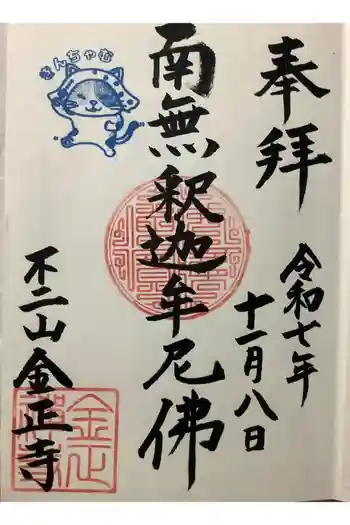 奉拝
令和七年
十一月八日
南無釈迦牟尼佛
きんちゃむ
不二山金正寺